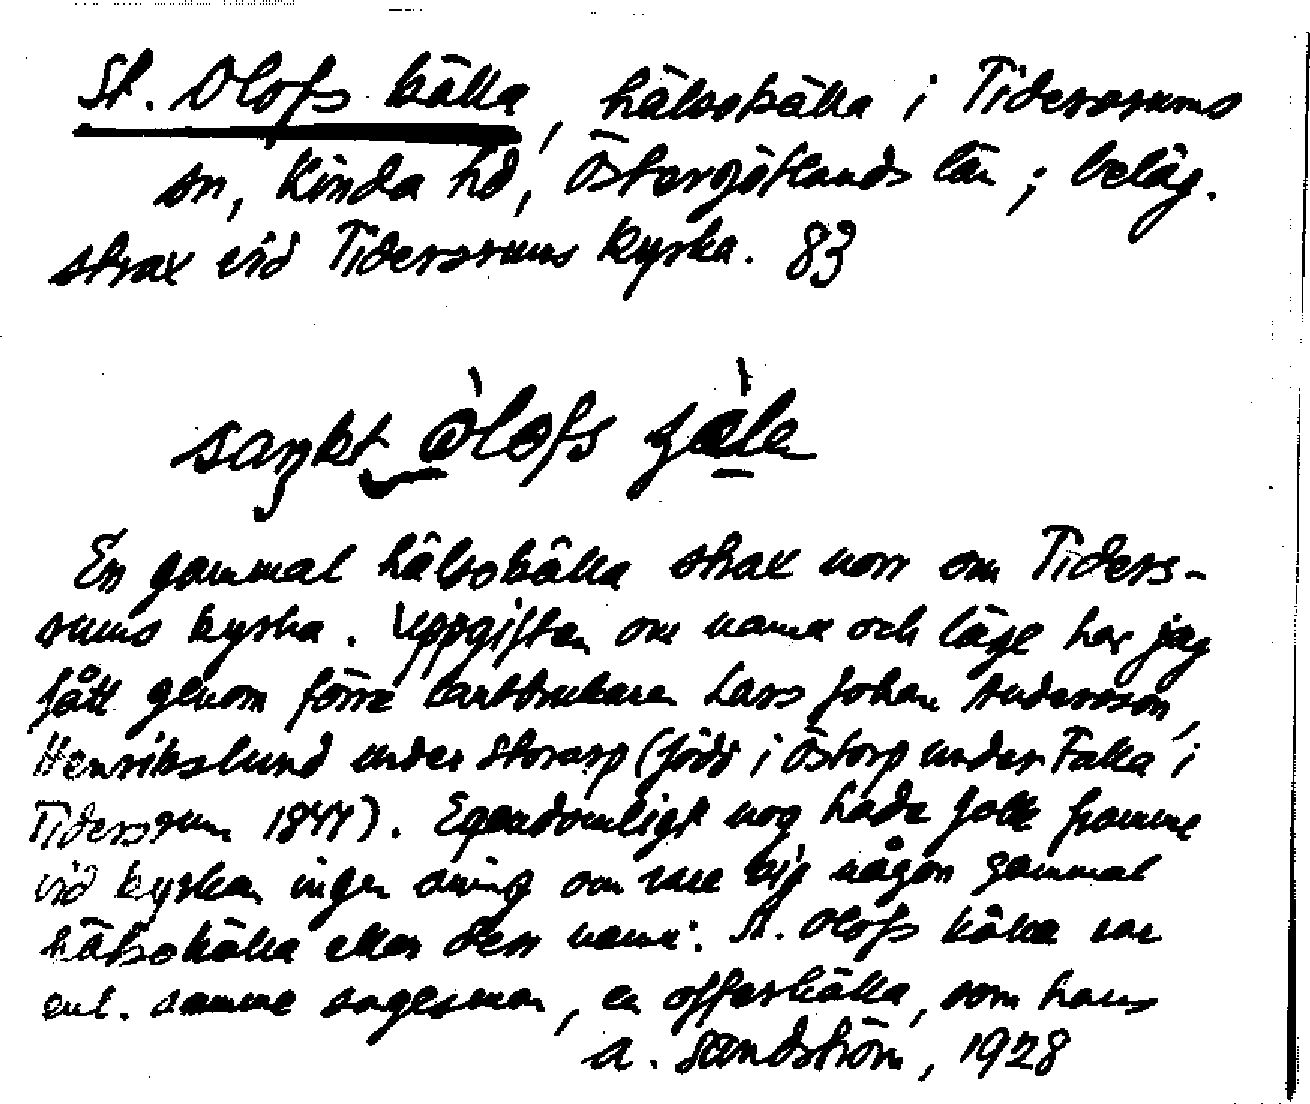 St. Olofs källa, hälsokälla i Tidersrums
sn, Kinda hd, Östergötlands län; beläg.
strax vid Tidersrums kyrka. 83
saŋkt òlofs
En gammal hälsokälla strax norr om Tiders-
rums kyrka. Uppgiften om namn och läge har jag
fått genom förre lantbrukaren Lars Johan Andersson,
Henrikslund under Storarp (född i Östorp under Falla i
Tidersrum 1844). Egendomligt nog hade folk framme
vid kyrkan ingen aning om vare sig någon gammal
hälsokälla eller dess namn. St. Olofs källa var
enl. samme sagesman, en offerkälla, som hans
A. Sandström, 1928